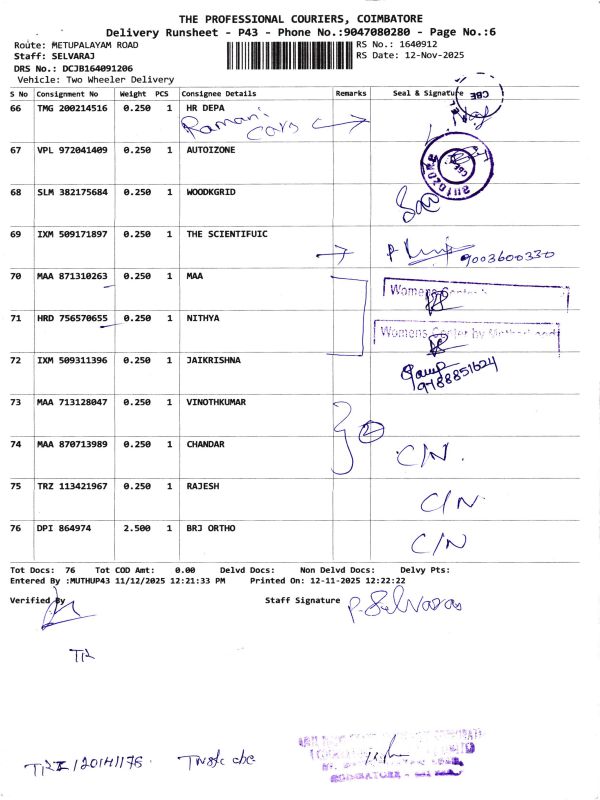 THE PROFESSIONAL COURIERS, COIMBATORE
Delivery Runsheet - P43 - Phone No.:9047080280 - Page No.:6
Route: METUPALAYAM ROAD RS No.: 1640912
Staff: SELVARAJ RS Date: 12-Nov-2025
DRS No.: DCJB164091206
Vehicle: Two Wheeler Delivery
S No Consignment No Weight PCS Consignee Details Remarks Seal & Signature
CBE
66 TMG 200214516 0.250 1 HR DEPA
Ramani Cars
67 VPL 972041409 0.250 1 AUTOIZONE
CBE
68 SLM 382175684 0.250 1 WOODKGRID
69 IXM 509171897 0.250 1 THE SCIENTIFUIC
9003600330
70 MAA 871310263 0.250 1 MAA
Womens Center
71 HRD 756570655 0.250 1 NITHYA
Womens Center by Motherhood
72 IXM 509311396 0.250 1 JAIKRISHNA
9788851624
73 MAA 713128047 0.250 1 VINOTHKUMAR
2
74 MAA 870713989 0.250 1 CHANDAR
C/N.
75 TRZ 113421967 0.250 1 RAJESH
C/N.
76 DPI 864974 2.500 1 BRJ ORTHO
C/N
Tot Docs: 76 Tot COD Amt: 0.00 Delvd Docs: Non Delvd Docs: Delvy Pts:
Entered By :MUTHUP43 11/12/2025 12:21:33 PM Printed On: 12-11-2025 12:22:22
Verified By Staff Signature P. Selvaraj